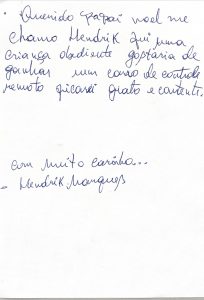 • Querido papai noel me
chamo Hendrik fui uma
criança obediente gostaria de
ganhar um carro de controle
remoto ficarei grato e contente.
com muito carinho...
• Hendrik Marques